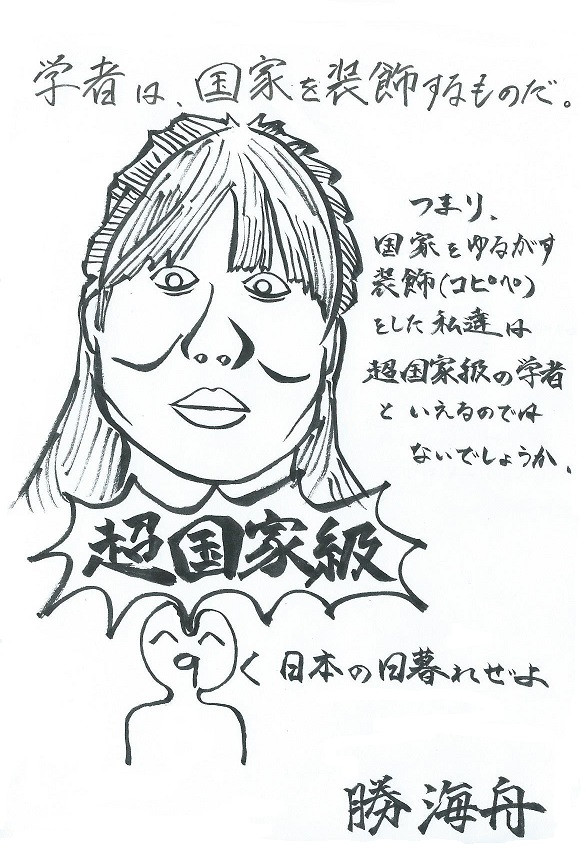 学者は、国家を装飾するものだ。
つまり、
国家をゆるがす
装飾(コピペ)
をした私達は
超国家級の学者
といえるのでは
ないでしょうか。
超国家級
く日本の日暮れぜよ
勝海舟